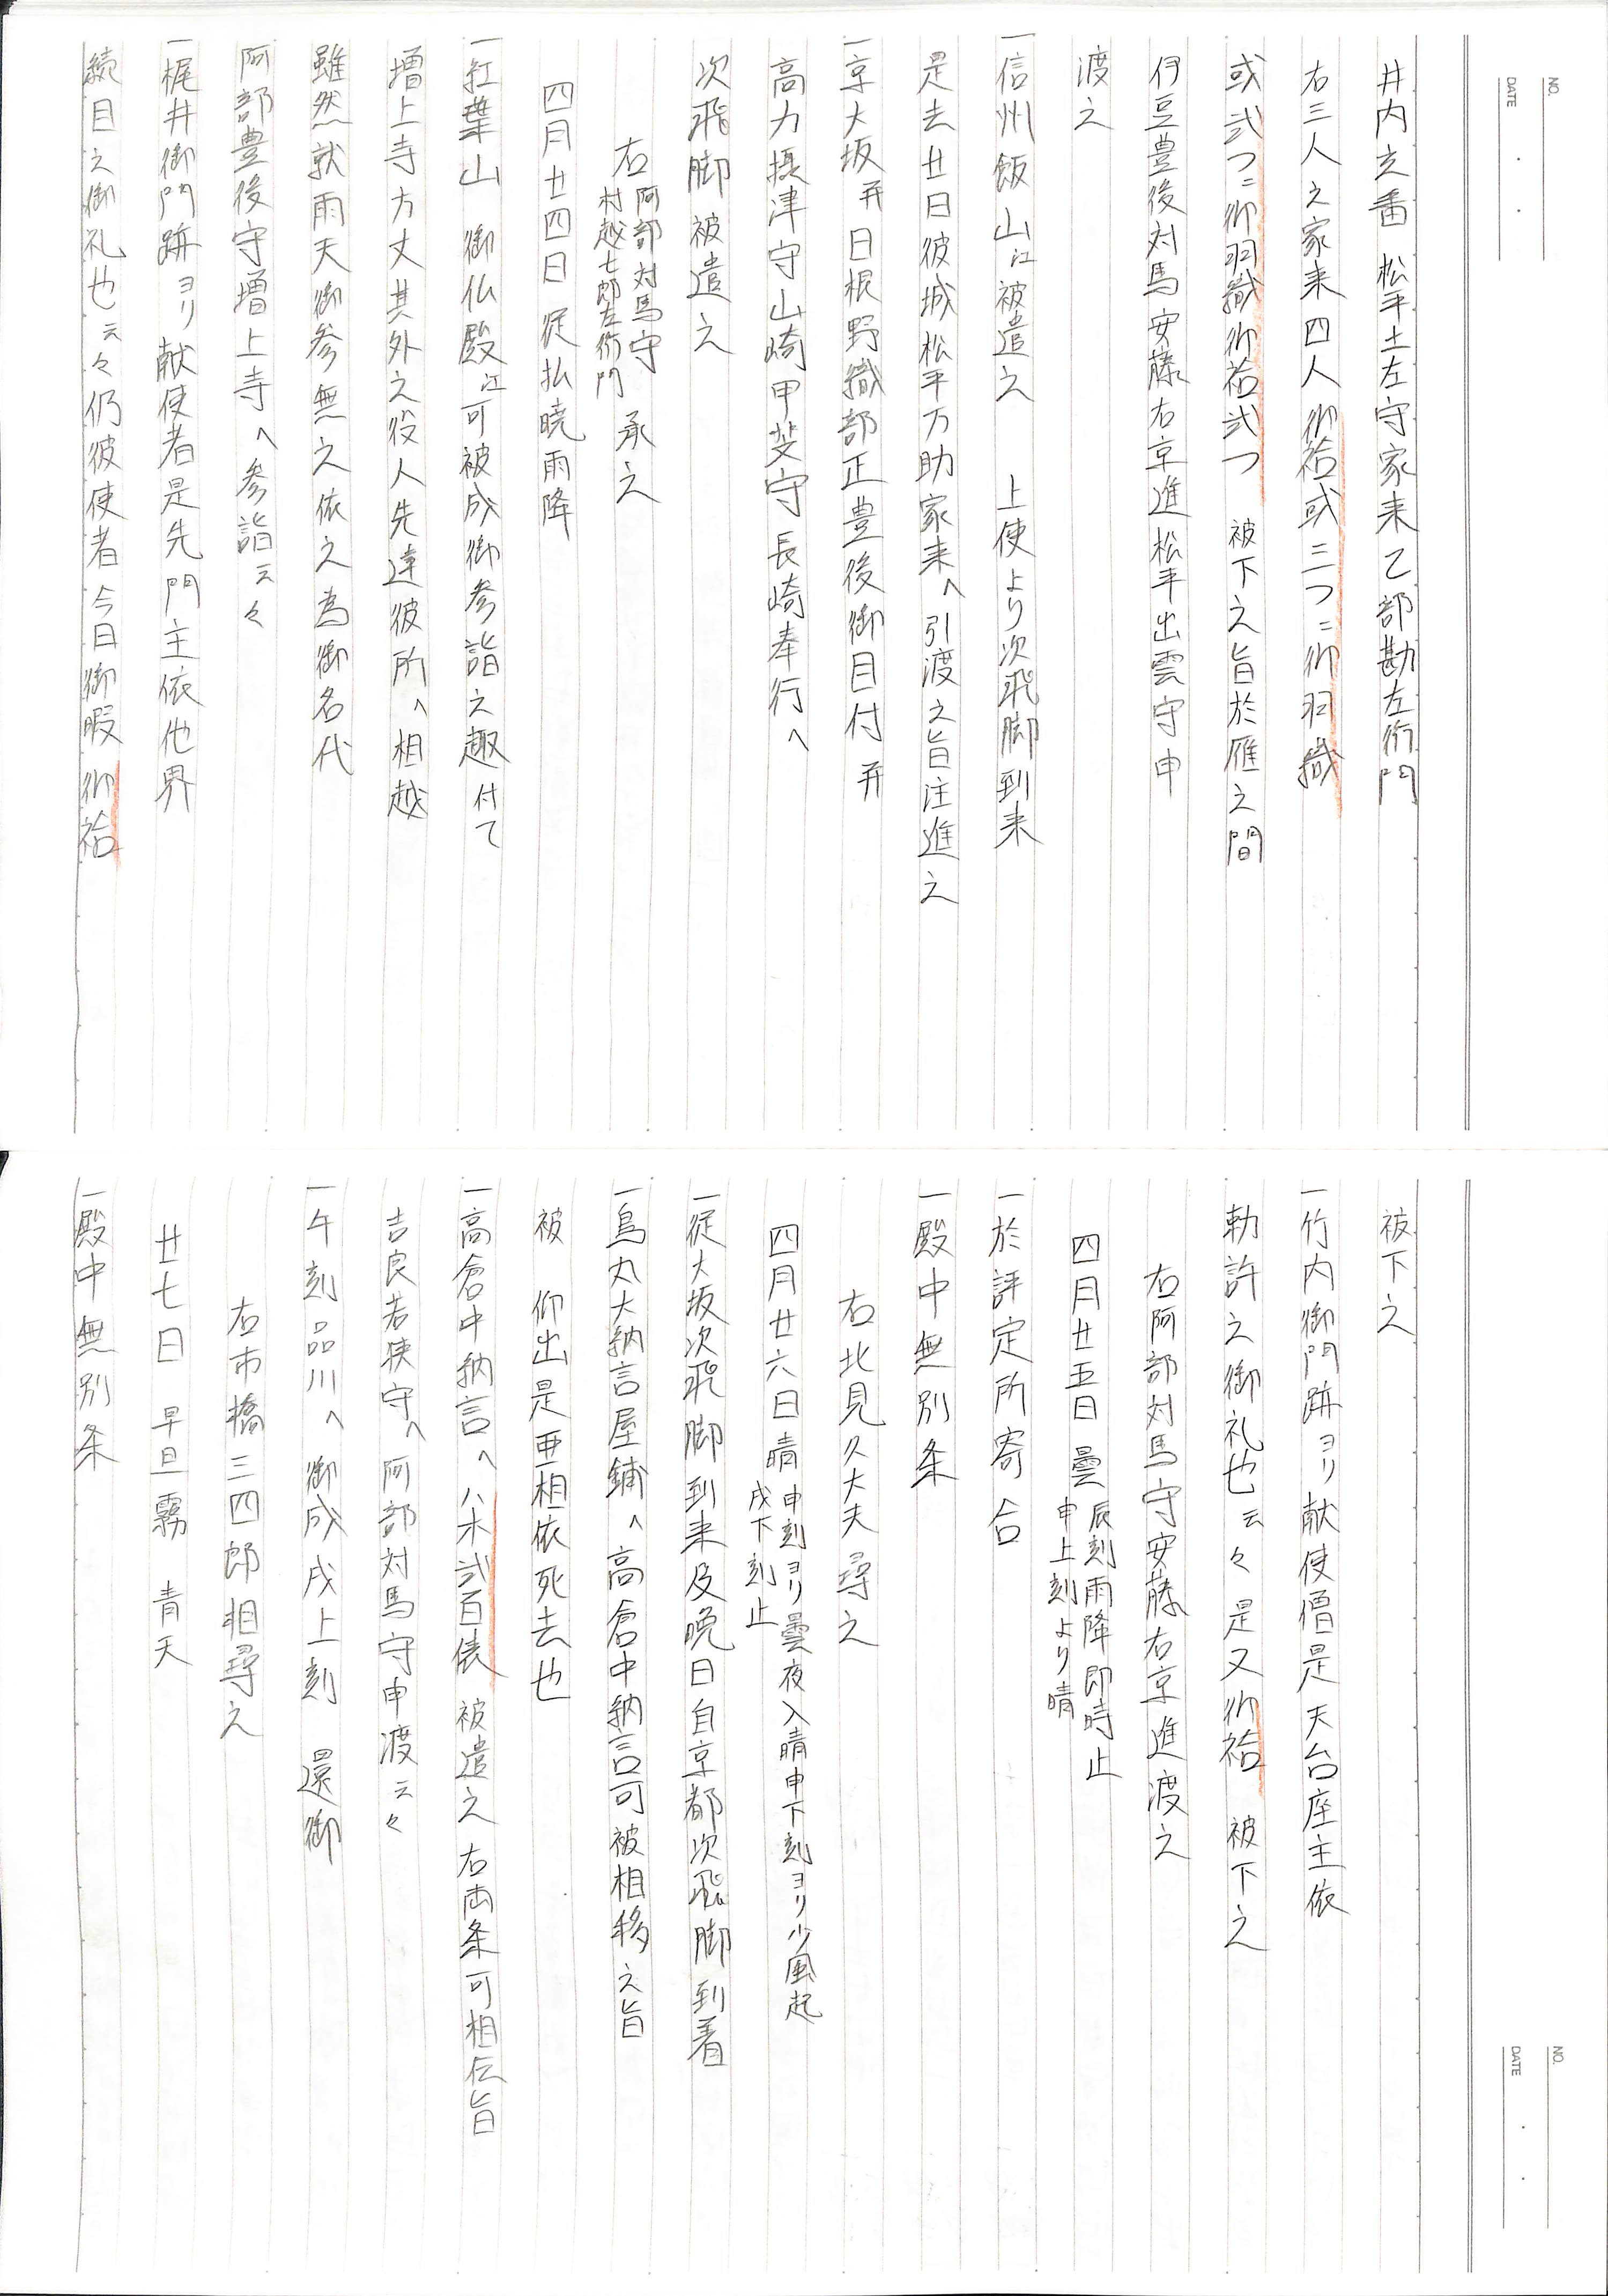 NO.
DATE
井内之番 松平土左守家来乙部勘左衛門
右三人之家来四人御袷或三つニ御羽織
或弐つニ御羽織御袷弐つ 被下之旨於雁之間
伊豆豊後対馬安藤右京進松平出雲守申
渡之
一信州飯山江被遣之 上使より次飛脚到来
是去廿日彼城松平万助家来へ引渡之旨注進之
一京大坂并日根野織部正豊後御目付并
高力摂津守山崎甲斐守長崎奉行へ
次飛脚被遣之
右阿部対馬守
村越七郎左衛門 承之
四月廿四日 従払暁雨降
一紅葉山 御仏殿江可被成御参詣之趣付て
増上寺方丈其外之役人先達彼所へ相越
雖然就雨天御参無之依之為御名代
阿部豊後守増上寺へ参詣云々
一梶井御門跡ヨリ献使者是先門主依他界
続目之御礼也云々仍彼使者今日御暇御袷
NO.
DATE
被下之
一竹内御門跡ヨリ献使僧是天台座主依
勅許之御礼也云々是又御袷 被下之
右阿部対馬守安藤右京進渡之
四月廿五日 曇 辰刻雨降即時止
申上刻より晴
一於評定所寄合
一殿中無別条
右北見久大夫尋之
四月廿六日晴 申刻ヨリ曇夜入晴申下刻ヨリ少風起
戌下刻止
一従大坂次飛脚到来及晩日自京都次飛脚到着
一烏丸大納言屋鋪へ高倉中納言可被相移之旨
被 仰出是亜相依死去也
一高倉中納言へ八木弐百俵 被遣之右両条可相伝旨
吉良若狭守へ阿部対馬守申渡云々
一午刻品川へ御成戌上刻 還御
右市橋三四郎相尋之
廿七日 早旦霧 青天
一殿中無別条